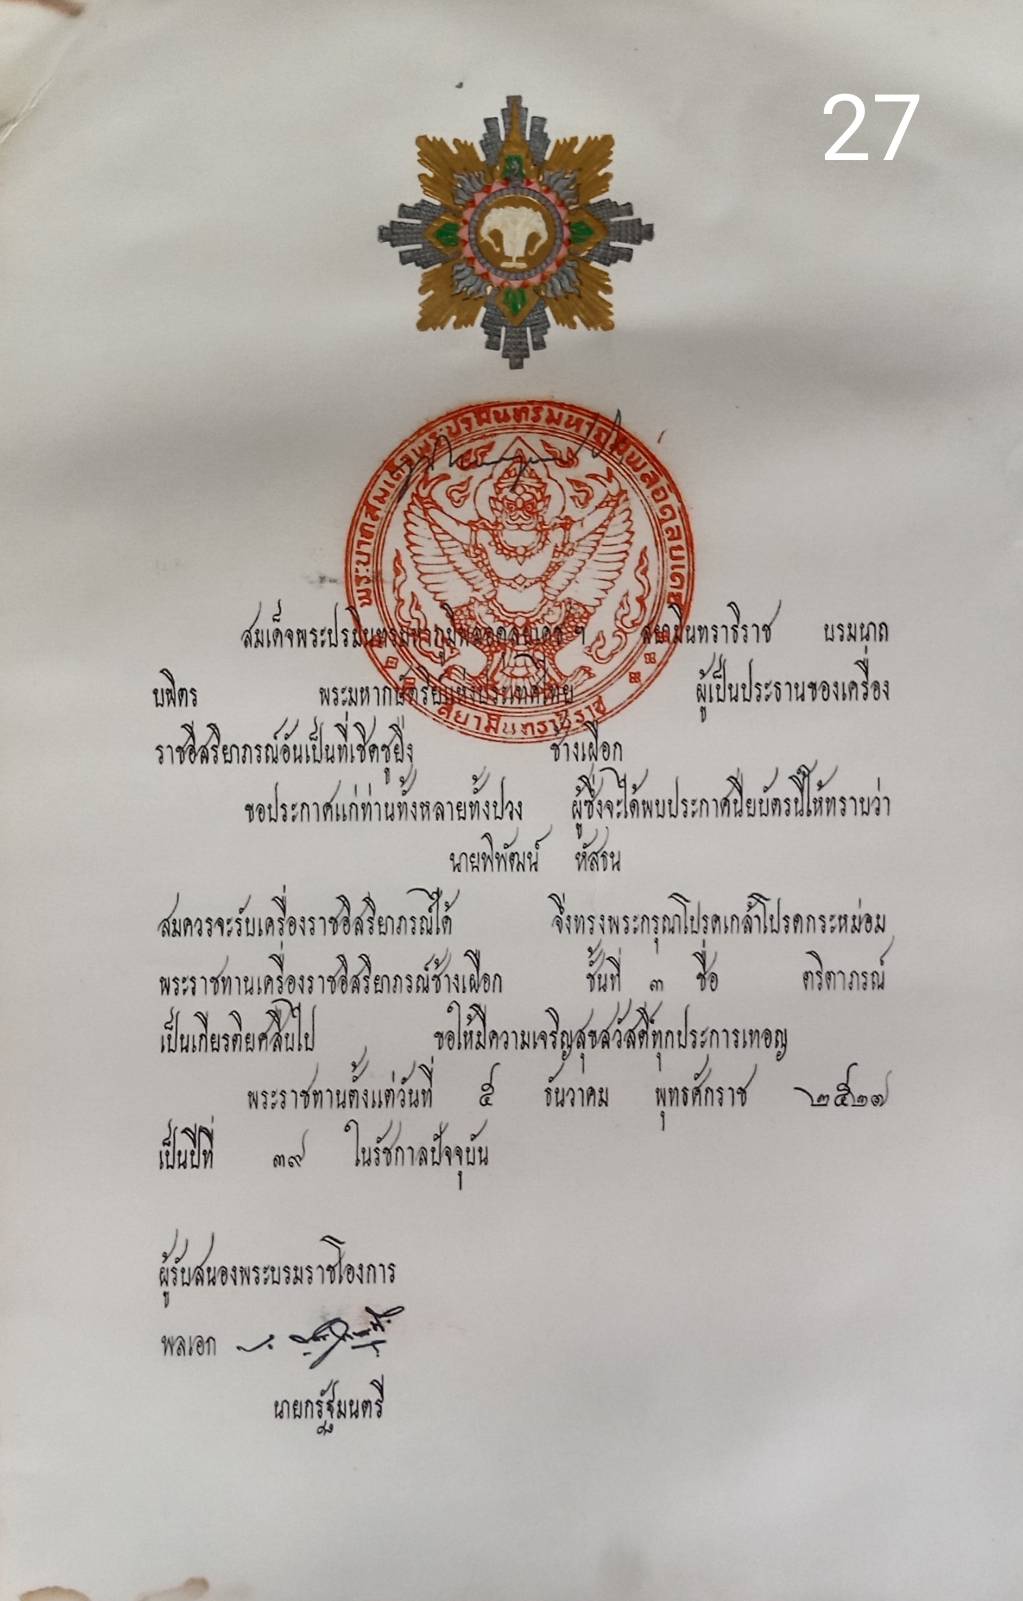 27
พระบาทสมเด็จพระปรมินทรมหาภูมิพลอดุลยเดช
สยามินทราธิราช
สมเด็จพระปรมินทรมหาภูมิพลอดุลยเดช ฯ สยามินทราธิราช บรมนาถ
บพิตร พระมหากษัตริย์แห่งประเทศไทย ผู้เป็นประธานของเครื่อง
ราชอิสริยาภรณ์อันเป็นที่เชิดชูยิ่ง ช้างเผือก
ขอประกาศแก่ท่านทั้งหลายทั้งปวง ผู้ซึ่งจะได้พบประกาศนียบัตรนี้ให้ทราบว่า
นายพิพัฒน์ หัสธน
สมควรจะรับเครื่องราชอิสริยาภรณ์ได้ จึงทรงพระกรุณาโปรดเกล้าโปรดกระหม่อม
พระราชทานเครื่องราชอิสริยาภรณ์ช้างเผือก ชั้นที่ ๓ ชื่อ ตริตาภรณ์
เป็นเกียรติยศสืบไป ขอให้มีความเจริญสุขสวัสดิ์ทุกประการเทอญ
พระราชทานตั้งแต่วันที่ ๕ ธันวาคม พุทธศักราช ๒๕๒๗
เป็นปีที่ ๓๙ ในรัชกาลปัจจุบัน
ผู้รับสนองพระบรมราชโองการ
พลเอก
นายกรัฐมนตรี